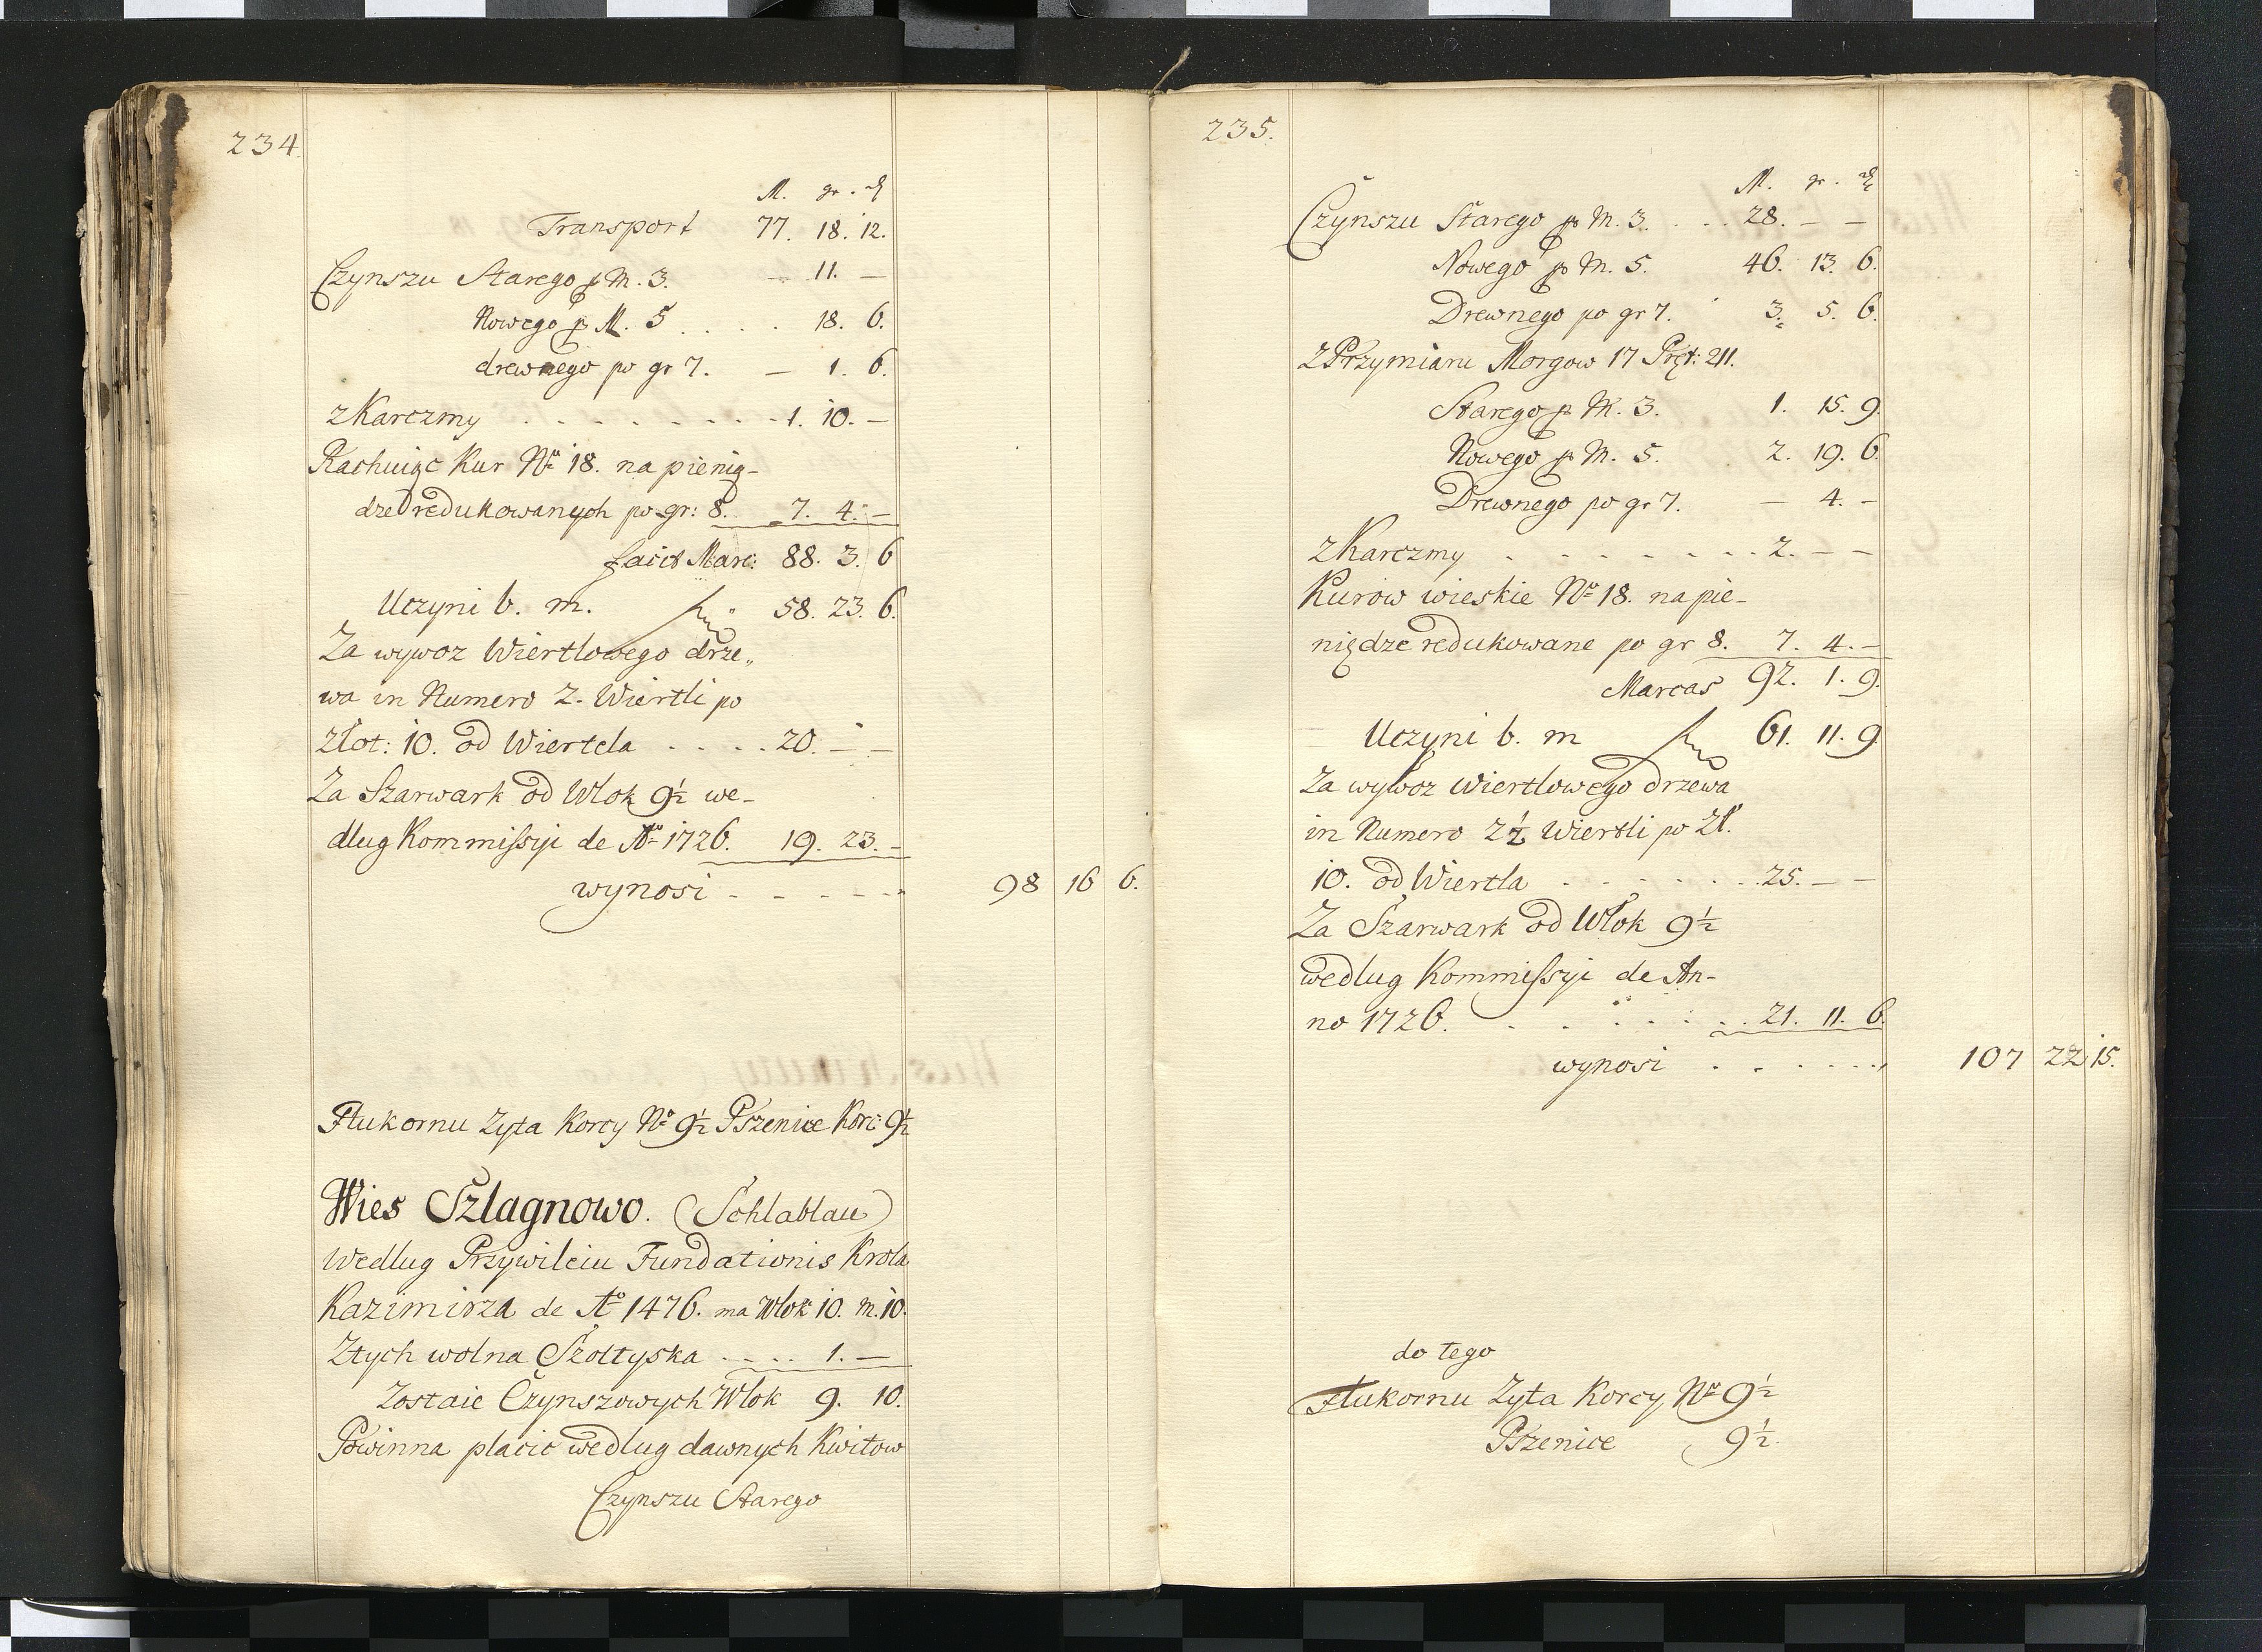 234.
M. gr. ₰
Transport 77. 18. 12.
Czynszu Starego p M. 3. — 11. —
Nowego p M. 5 . . . . 18. 6.
drewnego po gr 7. — 1. 6.
z Karczmy . . . . . . . . 1. 10. —
Rachuiąc Kur No 18. na pienią-
dze redukowanych po gr: 8. 7. 4. —
facit Marc: 88. 3. 6
Uczyni b. m. 58. 23. 6.
Za wywoz Wiertlowego drze„
wa in Numero 2. Wiertli po
złot: 10. od Wiertela . . . . 20. — —
Za Szarwark od Wlok 9½ we-
dlug Kommissyi de Ao 1726. 19. 23. —
wynosi - - - - - 98 16 6.
Flukornu Zyta Korcy No 9½ Pszenice Korc: 9½
Wies Szlagnowo. (Schlablau)
Wedlug Przywileiu Fundationis Krola
Kazimirza de Ao 1476. ma Wlok 10. m. 10.
Ztych wolna Szoltyska . . . . 1. —
Zostaie Czynszowych Wlok 9. 10.
Powinna placic wedlug dawnych Kwitow
Czynszu Starego
235.
M. gr. ₰
Czynszu Starego p M. 3. . . . 28. — —
Nowego p M. 5. 46. 13. 6.
Drewnego po gr 7. 3. 5. 6.
z Przymiaru Morgow 17 Pręt: 211.
Starego p M. 3. 1. 15. 9.
Nowego p M. 5. 2. 19. 6.
Drewnego po gr 7. — 4. —
z Karczmy . . . . . . . . 2. — —
Kurow wieskie No 18. na pie-
niędze redukowane po gr 8. 7. 4. —
Marcas 92. 1. 9.
Uczyni b. m 61. 11. 9
Za wywoz Wiertlowego drzewa
in Numero 2½ Wiertli po Zł.
10. od Wiertla . . . . . . . 25. — —
Za Szarwark od Włok 9½
wedlug Kommissyi de An-
no 1726. . . . . . . . 21. 11. 6.
wynosi . . . . . . 107 22 15.
do tego
Flukornu Zyta Korcy No 9½
Pszenice 9½.